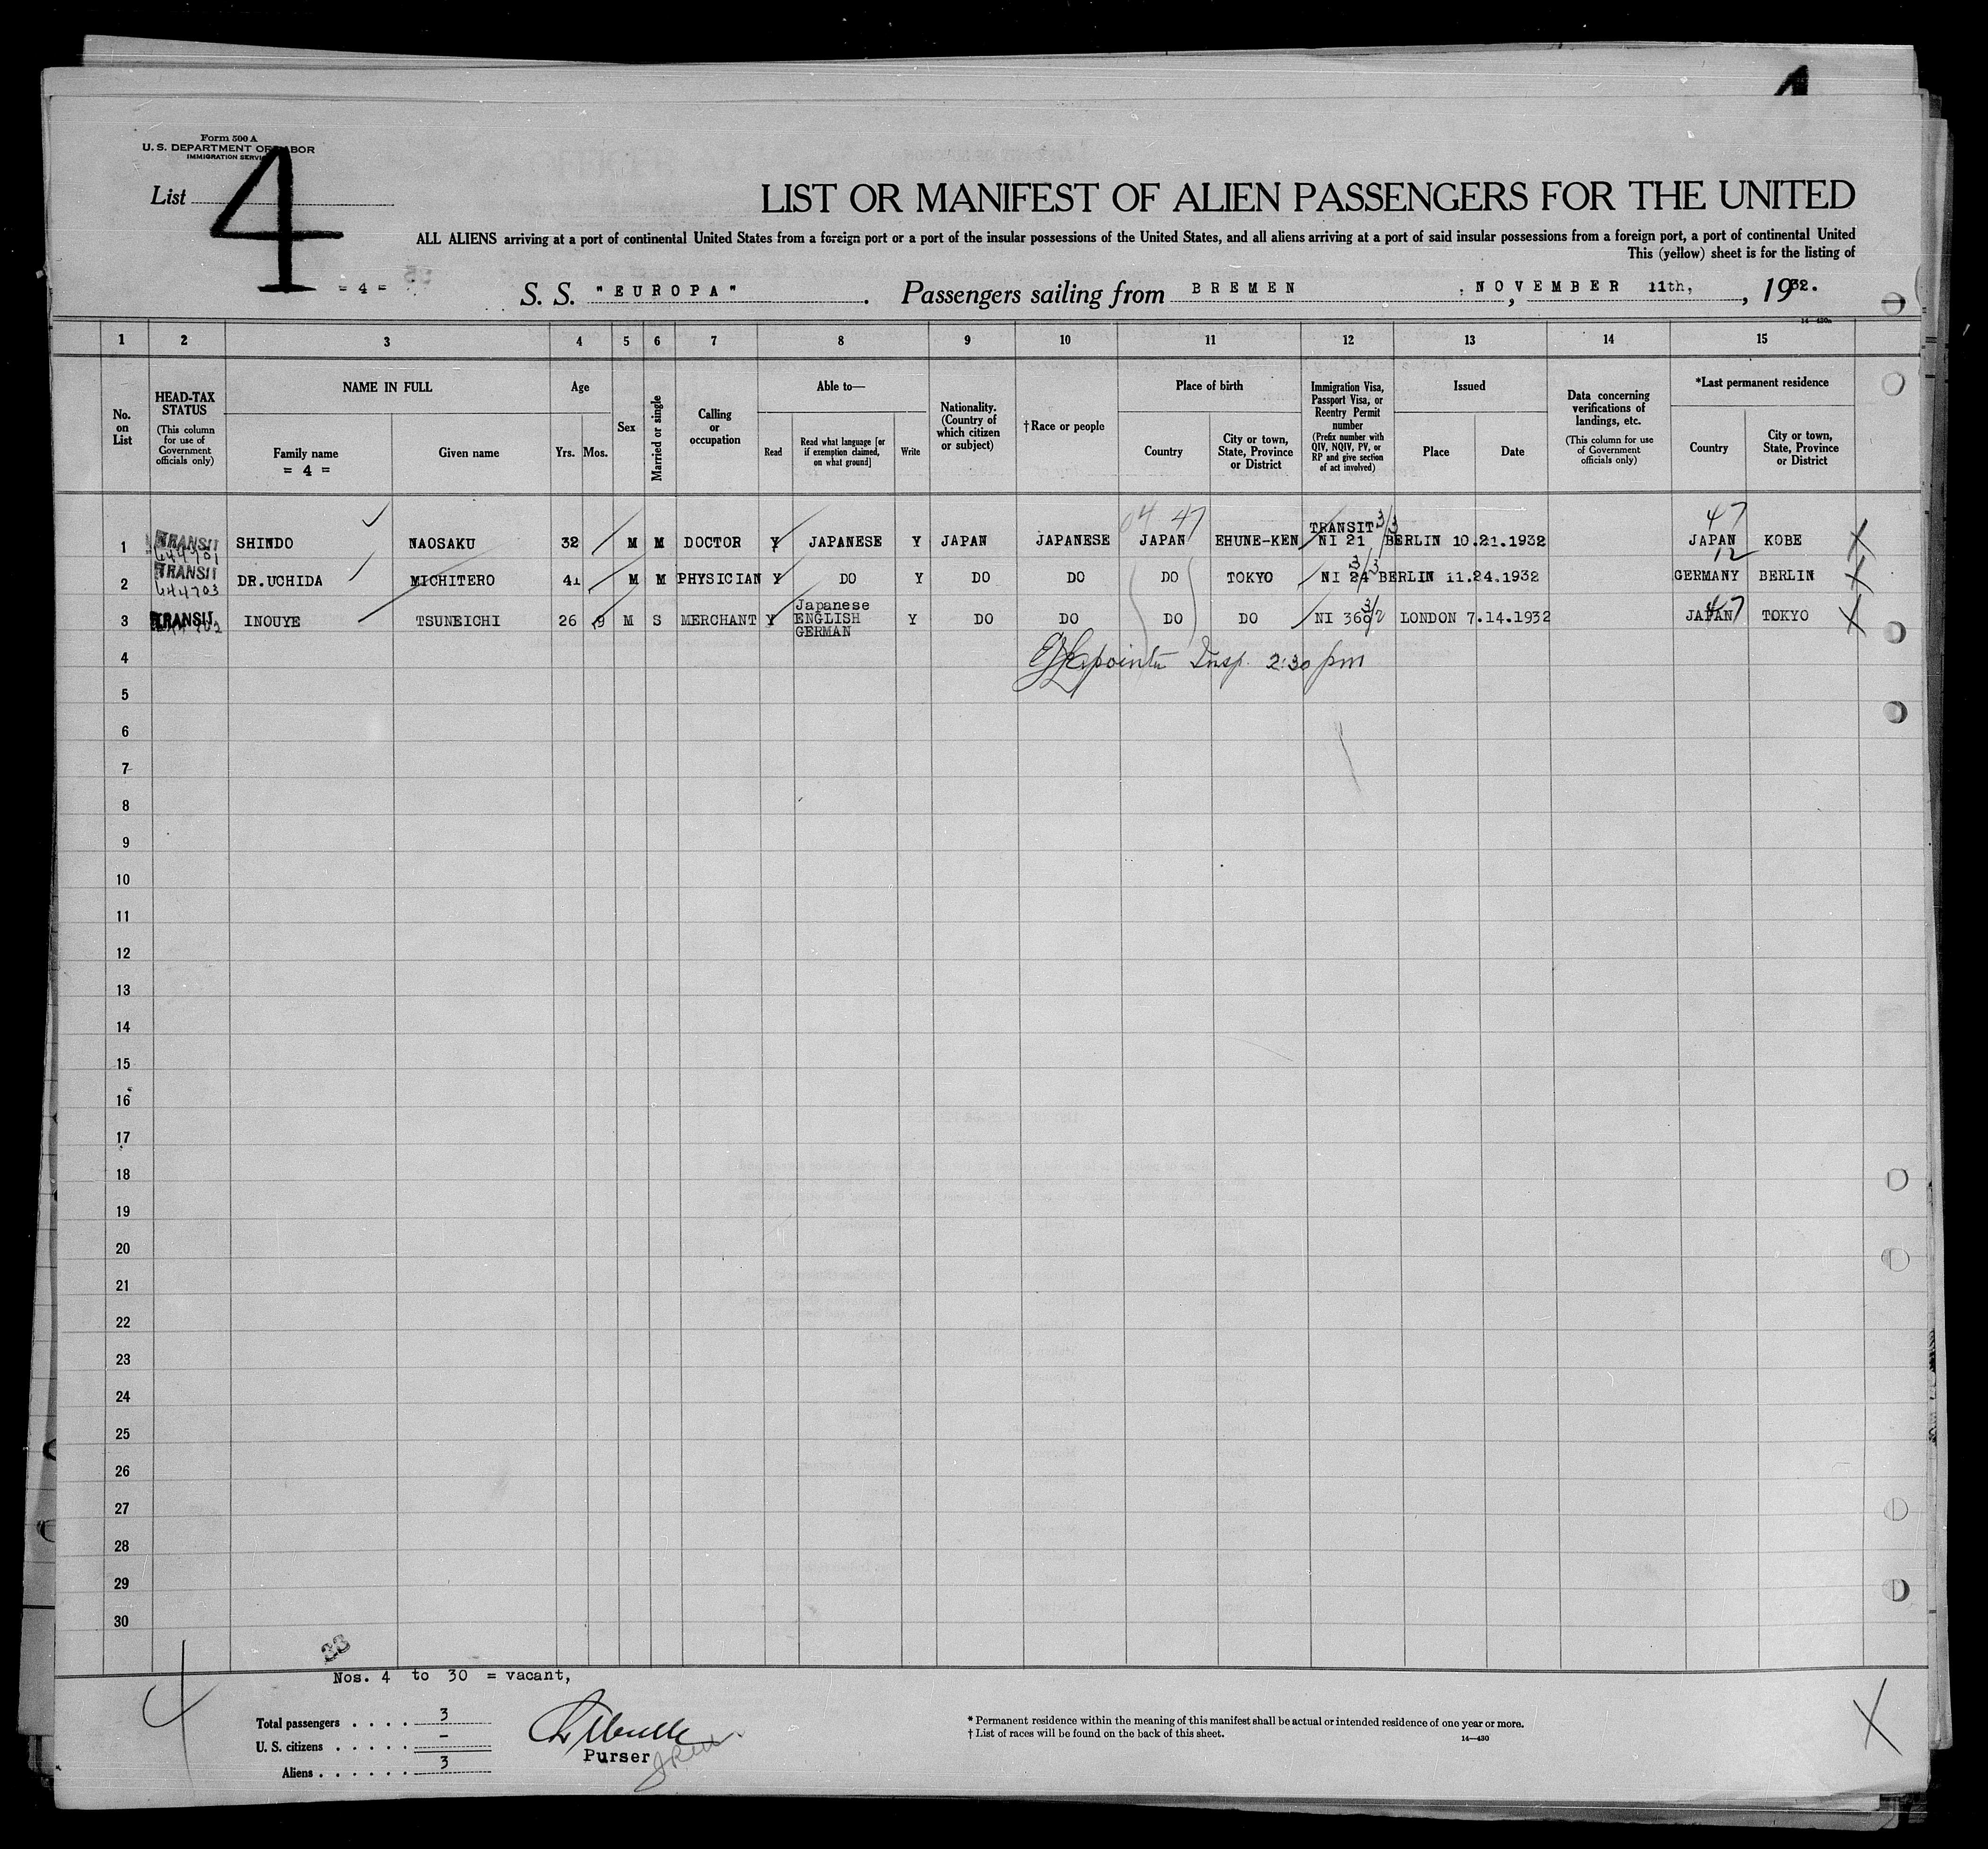 Form 500 A
U. S. DEPARTMENT OF LABOR
IMMIGRATION SERVICE
List 4
LIST OR MANIFEST OF ALIEN PASSENGERS FOR THE UNITED
ALL ALIENS arriving at a port of continental United States from a foreign port or a port of the insular possessions of the United States, and all aliens arriving at a port of said insular possessions from a foreign port, a port of continental United
This (yellow) sheet is for the listing of
= 4 = S. S. "EUROPA". Passengers sailing from BREMEN, NOVEMBER 11th, 1932.
14—430a
1 2 3 4 5 6 7 8 9 10 11 12 13 14 15
No. on List
HEAD-TAX STATUS (This column for use of Government officials only)
NAME IN FULL
Family name
= 4 =
Given name
Age
Yrs. Mos.
Sex
Married or single
Calling or occupation
Able to—
Read
Read what language [or if exemption claimed, on what ground]
Write
Nationality. (Country of which citizen or subject)
†Race or people
Place of birth
Country
City or town, State, Province or District
Immigration Visa, Passport Visa, or Reentry Permit number (Prefix number with QIV, NQIV, PV, or RP and give section of act involved)
Issued
Place
Date
Data concerning verifications of landings, etc. (This column for use of Government officials only)
*Last permanent residence
Country
City or town, State, Province or District
04 47 3/3 47
1 TRANSIT 644701 SHINDO NAOSAKU 32 M M DOCTOR Y JAPANESE Y JAPAN JAPANESE JAPAN EHUNE-KEN TRANSIT NI 21 BERLIN 10.21.1932 JAPAN KOBE
3/3 12
2 TRANSIT 644703 DR.UCHIDA MICHITERO 41 M M PHYSICIAN Y DO Y DO DO DO TOKYO NI 24 BERLIN 11.24.1932 GERMANY BERLIN
3/2 47
3 TRANSIT INOUYE TSUNEICHI 26 9 M S MERCHANT Y Japanese ENGLISH GERMAN Y DO DO DO DO NI 360 LONDON 7.14.1932 JAPAN TOKYO
4 Insp. 2:30 pm
5
6
7
8
9
10
11
12
13
14
15
16
17
18
19
20
21
22
23
24
25
26
27
28
29
30
33
Nos. 4 to 30 = vacant,
4
Total passengers . . . . 3
U. S. citizens . . . . . –
Aliens . . . . . . 3
Purser
* Permanent residence within the meaning of this manifest shall be actual or intended residence of one year or more.
† List of races will be found on the back of this sheet.
14—430